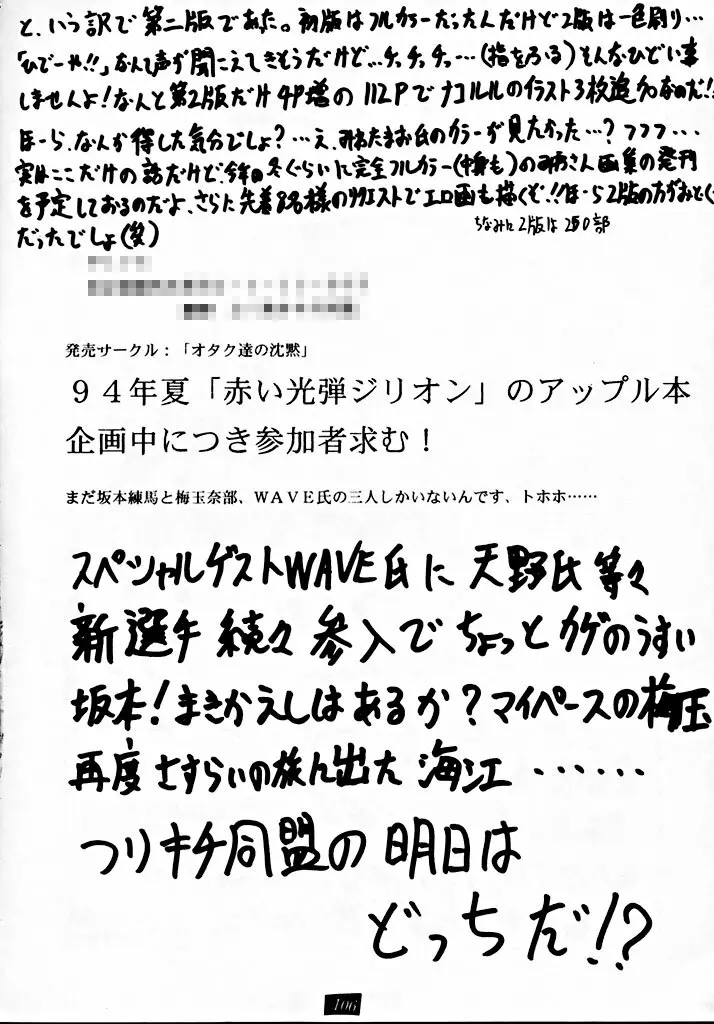 と、いう訳で第二版であた。初版はフルカラーだったんだけど2版は一色刷り…
「ひでーや!!」なんて声が聞こえてきそうだけど…チッチッチッ…(指をふる)そんなひどい事
しませんよ!なんと第2版だけ4P増の112Pでナコルルのイラスト3枚追加なのだ!!
ほーら、なんか得した気分でしょ?…え、みあたまお氏のカラーが見たかった…?フフフ…
実はここだけの話だけど、今年の冬ぐらいに完全フルカラー(中身も)の画集の発刊
を予定しておるのだよ、さらに先着2名様のリクエストでエロ画も描くぞ!!ほーら2版の方がおとく
だったでしょ(爻)
ちなみに2版は250部
発売サークル:「オタク達の沈黙」
94年夏「赤い光弾ジリオン」のアップル本
企画中につき参加者求む!
まだ坂本練馬と梅玉奈部、WAVE氏の三人しかいないんです、トホホ……
スペシャルゲストWAVE氏に天野氏等々
新選手続々参入でちょっとカゲのうすい
坂本!まきかえしはあるか?マイペースの梅玉
再度さすらいの旅に出た海江……
つりキチ同盟の明日は
どっちだ!?
106